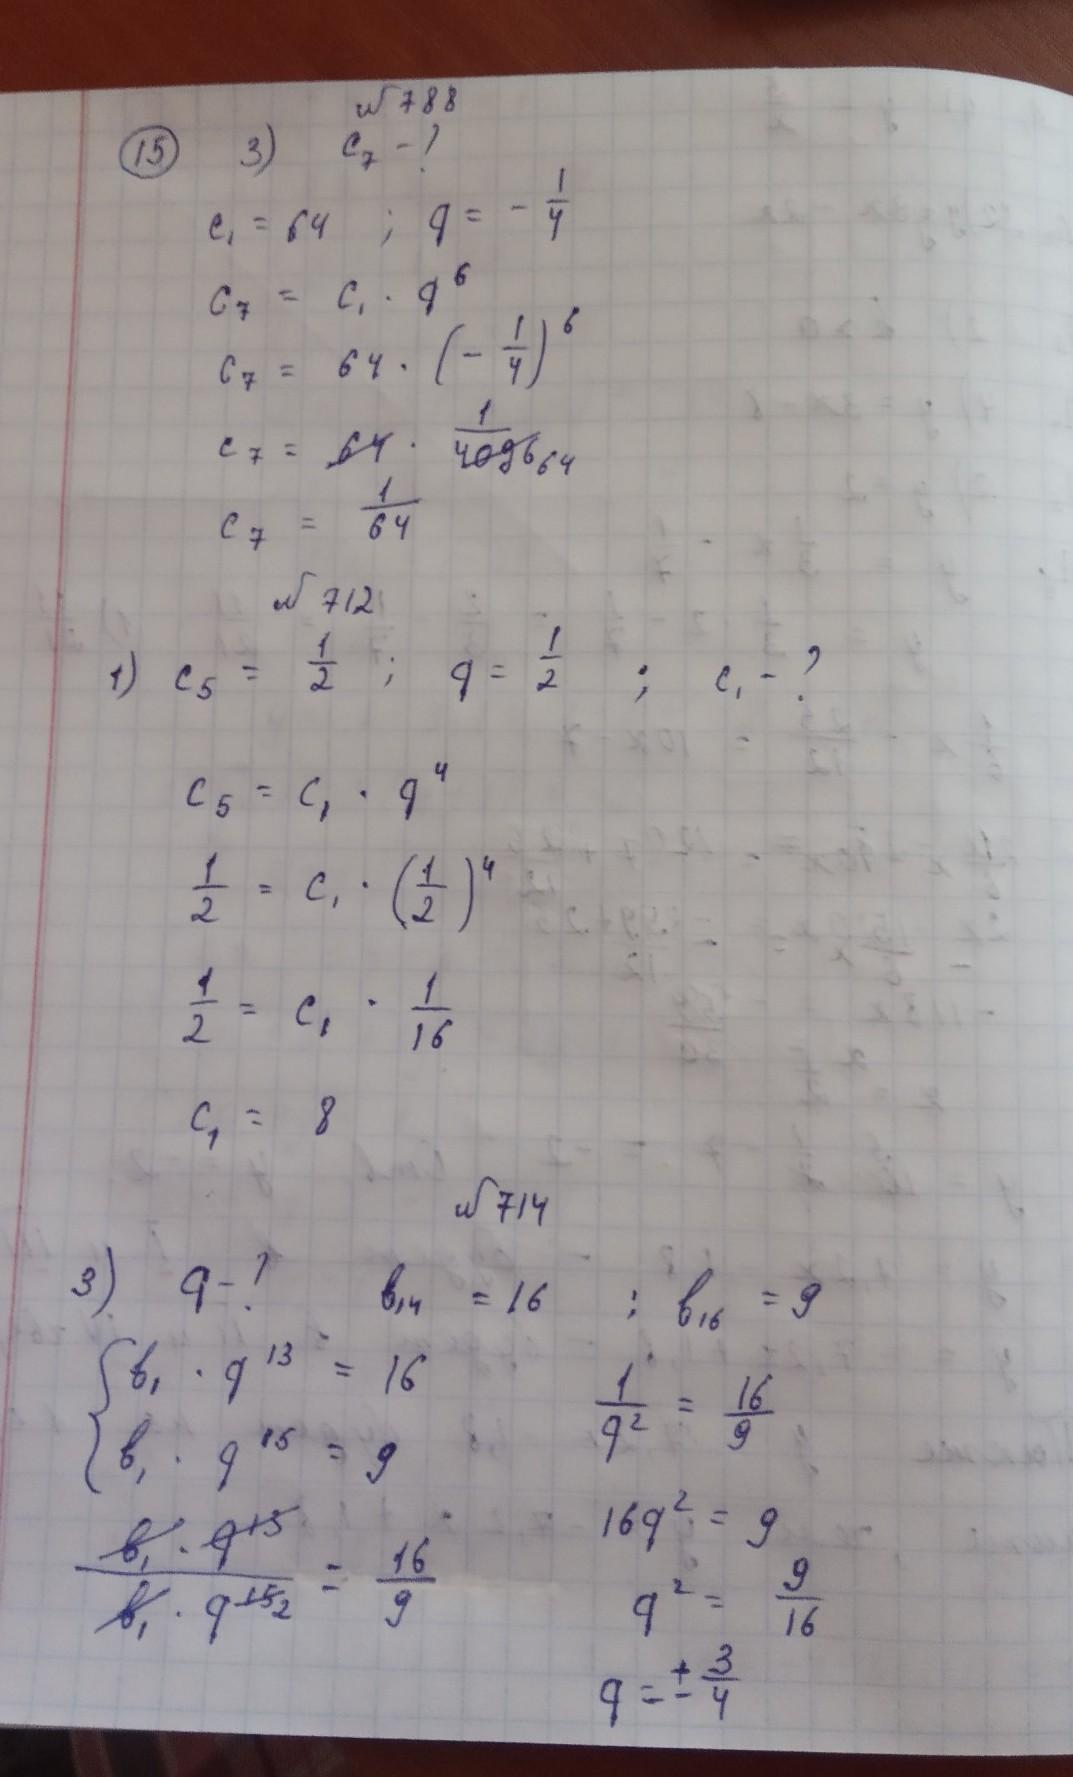 №788
15 3) c₇ - ?
c₁ = 64 ; q = - 1/4
c₇ = c₁ · q⁶
c₇ = 64 · (- 1/4)⁶
c₇ = 64 · 1/4096 64
c₇ = 1/64
№712
1) c₅ = 1/2 ; q = 1/2 ; c₁ - ?
c₅ = c₁ · q⁴
1/2 = c₁ · (1/2)⁴
1/2 = c₁ · 1/16
c₁ = 8
№714
3) q - ? в₁₄ = 16 ; в₁₆ = 9
{ в₁ · q¹³ = 16
в₁ · q¹⁵ = 9
в₁ · q¹³ / в₁ · q¹⁵ 2 = 16/9
1/q² = 16/9
16q² = 9
q² = 9/16
q = ± 3/4